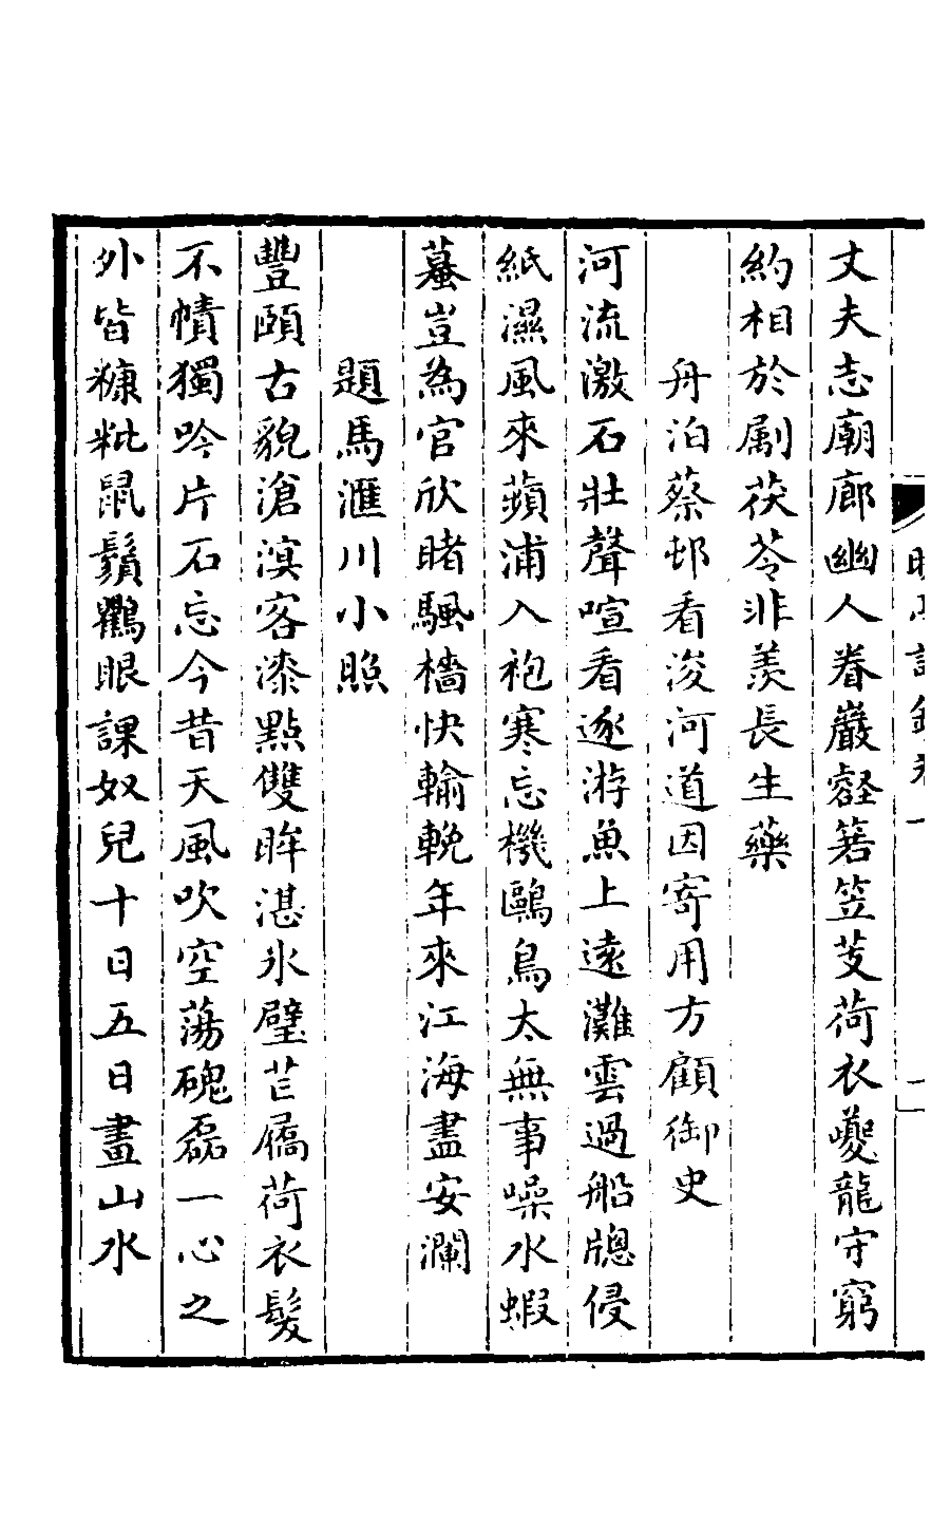 丈夫志廟廊幽人眷巖壑箬笠芰荷衣夔龍守窮
約相於劚茯苓非羨長生藥
舟泊蔡邨看浚河道因寄用方顧御史
河流激石壯聲喧看逐游魚上遠灘雲過船牕侵
紙濕風來蘋浦入袍寒忘機鷗鳥太無事噪水蝦
蟇豈為官欣睹颿檣快輸輓年來江海盡安瀾
題馬滙川小照
豐頤古貌滄溟客漆點雙眸湛氷壁芒屩荷衣髮
不幘獨吟片石忘今昔天風吹空蕩磈磊一心之
外皆糠粃鼠鬚鸜眼課奴兒十日五日畫山水